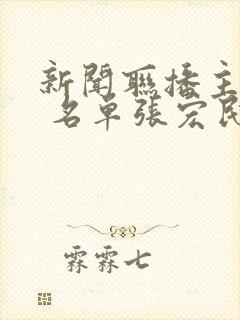 新聞聯播主
名單張宏民
霖霖七